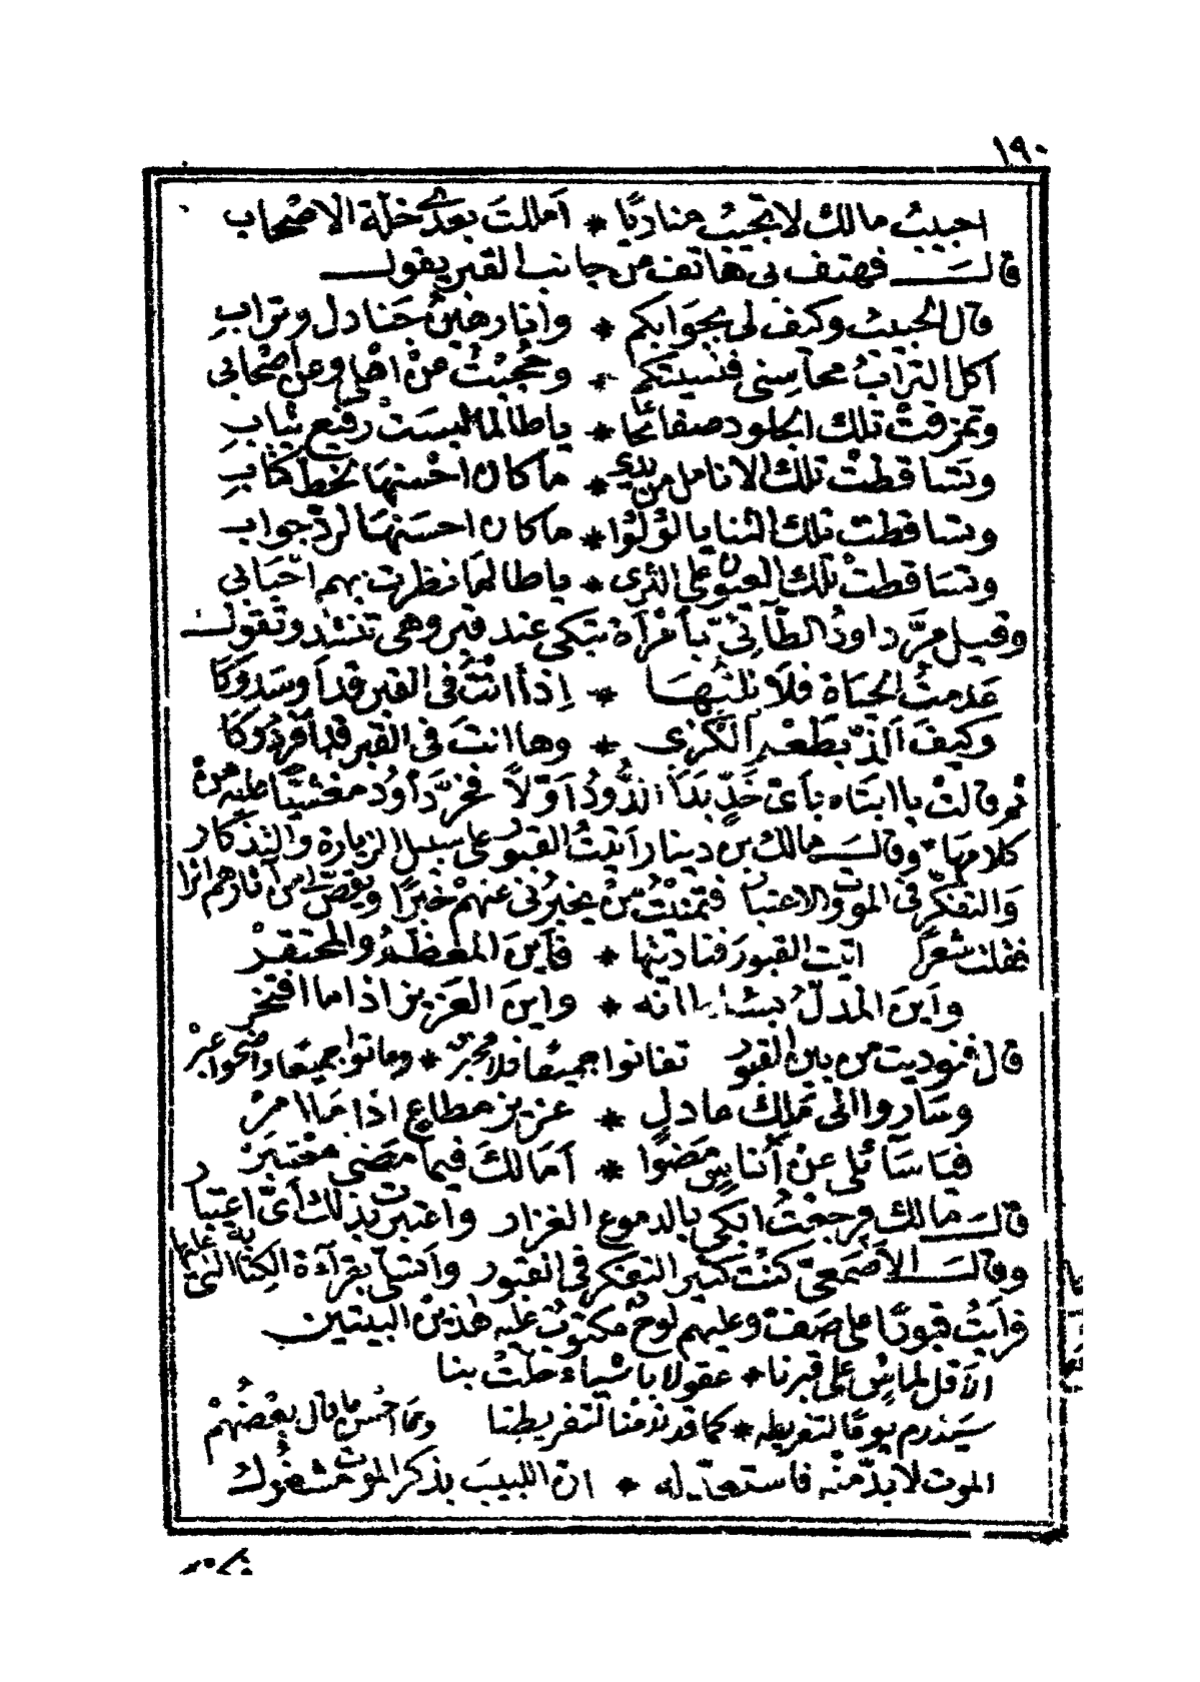 ١٩٠
احبيبُ مالك لا تجيبُ مناديًا * أمللتَ بعدي خلّة الأصْحاب
قالـــ فهتف بي هَاتف من جانب القبر يقولـــ
قال الحبيبُ وكيف لي بجوَابكم * وانا رهينُ جَنادل وترابِ
اكل الترَابُ محَاسِني فنسيتكم * وحُجبْتُ عنْ اهْلي وعن أصْحَابي
وتمزقتْ تلك الجلود صفائحًا * ياطالما لبسَتْ رفيع ثيابِ
وتساقطتْ تلك الانامل من يدي * ماكان احْسنهَا لخط كتابِ
وتساقطت تلك الثنايا لؤلؤا * ماكان احسَنهَا لردّ جواب
وتسَاقطتْ تلك العيون على الثرى * ياطالما نظرت بهم احْبَابي
وقيل مرَّ داودُ الطّآئيّ بأمْرأة تبكي عند قبر وهي تنشد وتقولـــ
عَدمتُ الحيَاة فلاَ نلتُهَا * إذا انتَ في القبر قدا وسَدوكَا
وكيفَ الذّ بطعْم الكرَى * وها انتَ في القبر قد أفردُوكَا
ثم قالتْ يا ابتَاه بأيّ خَدّ بَدَأ الدُّودُ اوّلاً فخرَّ دَاودُ مغشيًّا عليه منْ
كلامهَا * وقالـــ مالك بن دينار أتيتُ القبور على سبيل الزيارة والتذكار
وَالتفكّر في الموت والاعتبار فتمنيْتُ منْ يخبرُني عنهمْ خبرًا ويقصّ لي من آثارهم اثرا
فقلت شعرًا اتيت القبورَ فناديتها * فأينَ المعظّمُ والمحْتقرْ
وأينَ المدلّ بسُلطانه * واينَ العَزيز اذا ما افتخرْ
قال فنوديت من بين القبور تفانوا جميعًا فلا مخبرٌ * وماتوا جميعًا واضحوا عبرْ
وسَاروا الى مَلِك عادلٍ * عزيز مطاعٍ اذا مَا امرْ
فيَا سَآئلي عنْ أُناسٍ مَضوْا * أمَا لكَ فيما مَضى معْتبَرْ
قالـــ مالك فرجعْتُ ابكي بالدموع الغزار واعتبرت بذلك أيّ اعتبار
وقالـــ الأصمعيّ كنْتُ كثير التفكر في القبور وآتيها بقرآءة الكتابة التي عليها
فرأيتُ قبورًا على صَفة وعليهم لوحٌ مكتوبٌ عليه هٰذين البيتين
الأقل لماشٍ على قبرنا * عقولا باشْياءَ حلّتْ بنا
سيَندم يومًا لتفريطه * كما قد ندمْنا لتفريطنا وممّا احْسن ما قال بعْضهُمْ
الموت لابدّ منْه فاستعدّ له * انّ اللبيبَ بذكر الموت مشغُولُ